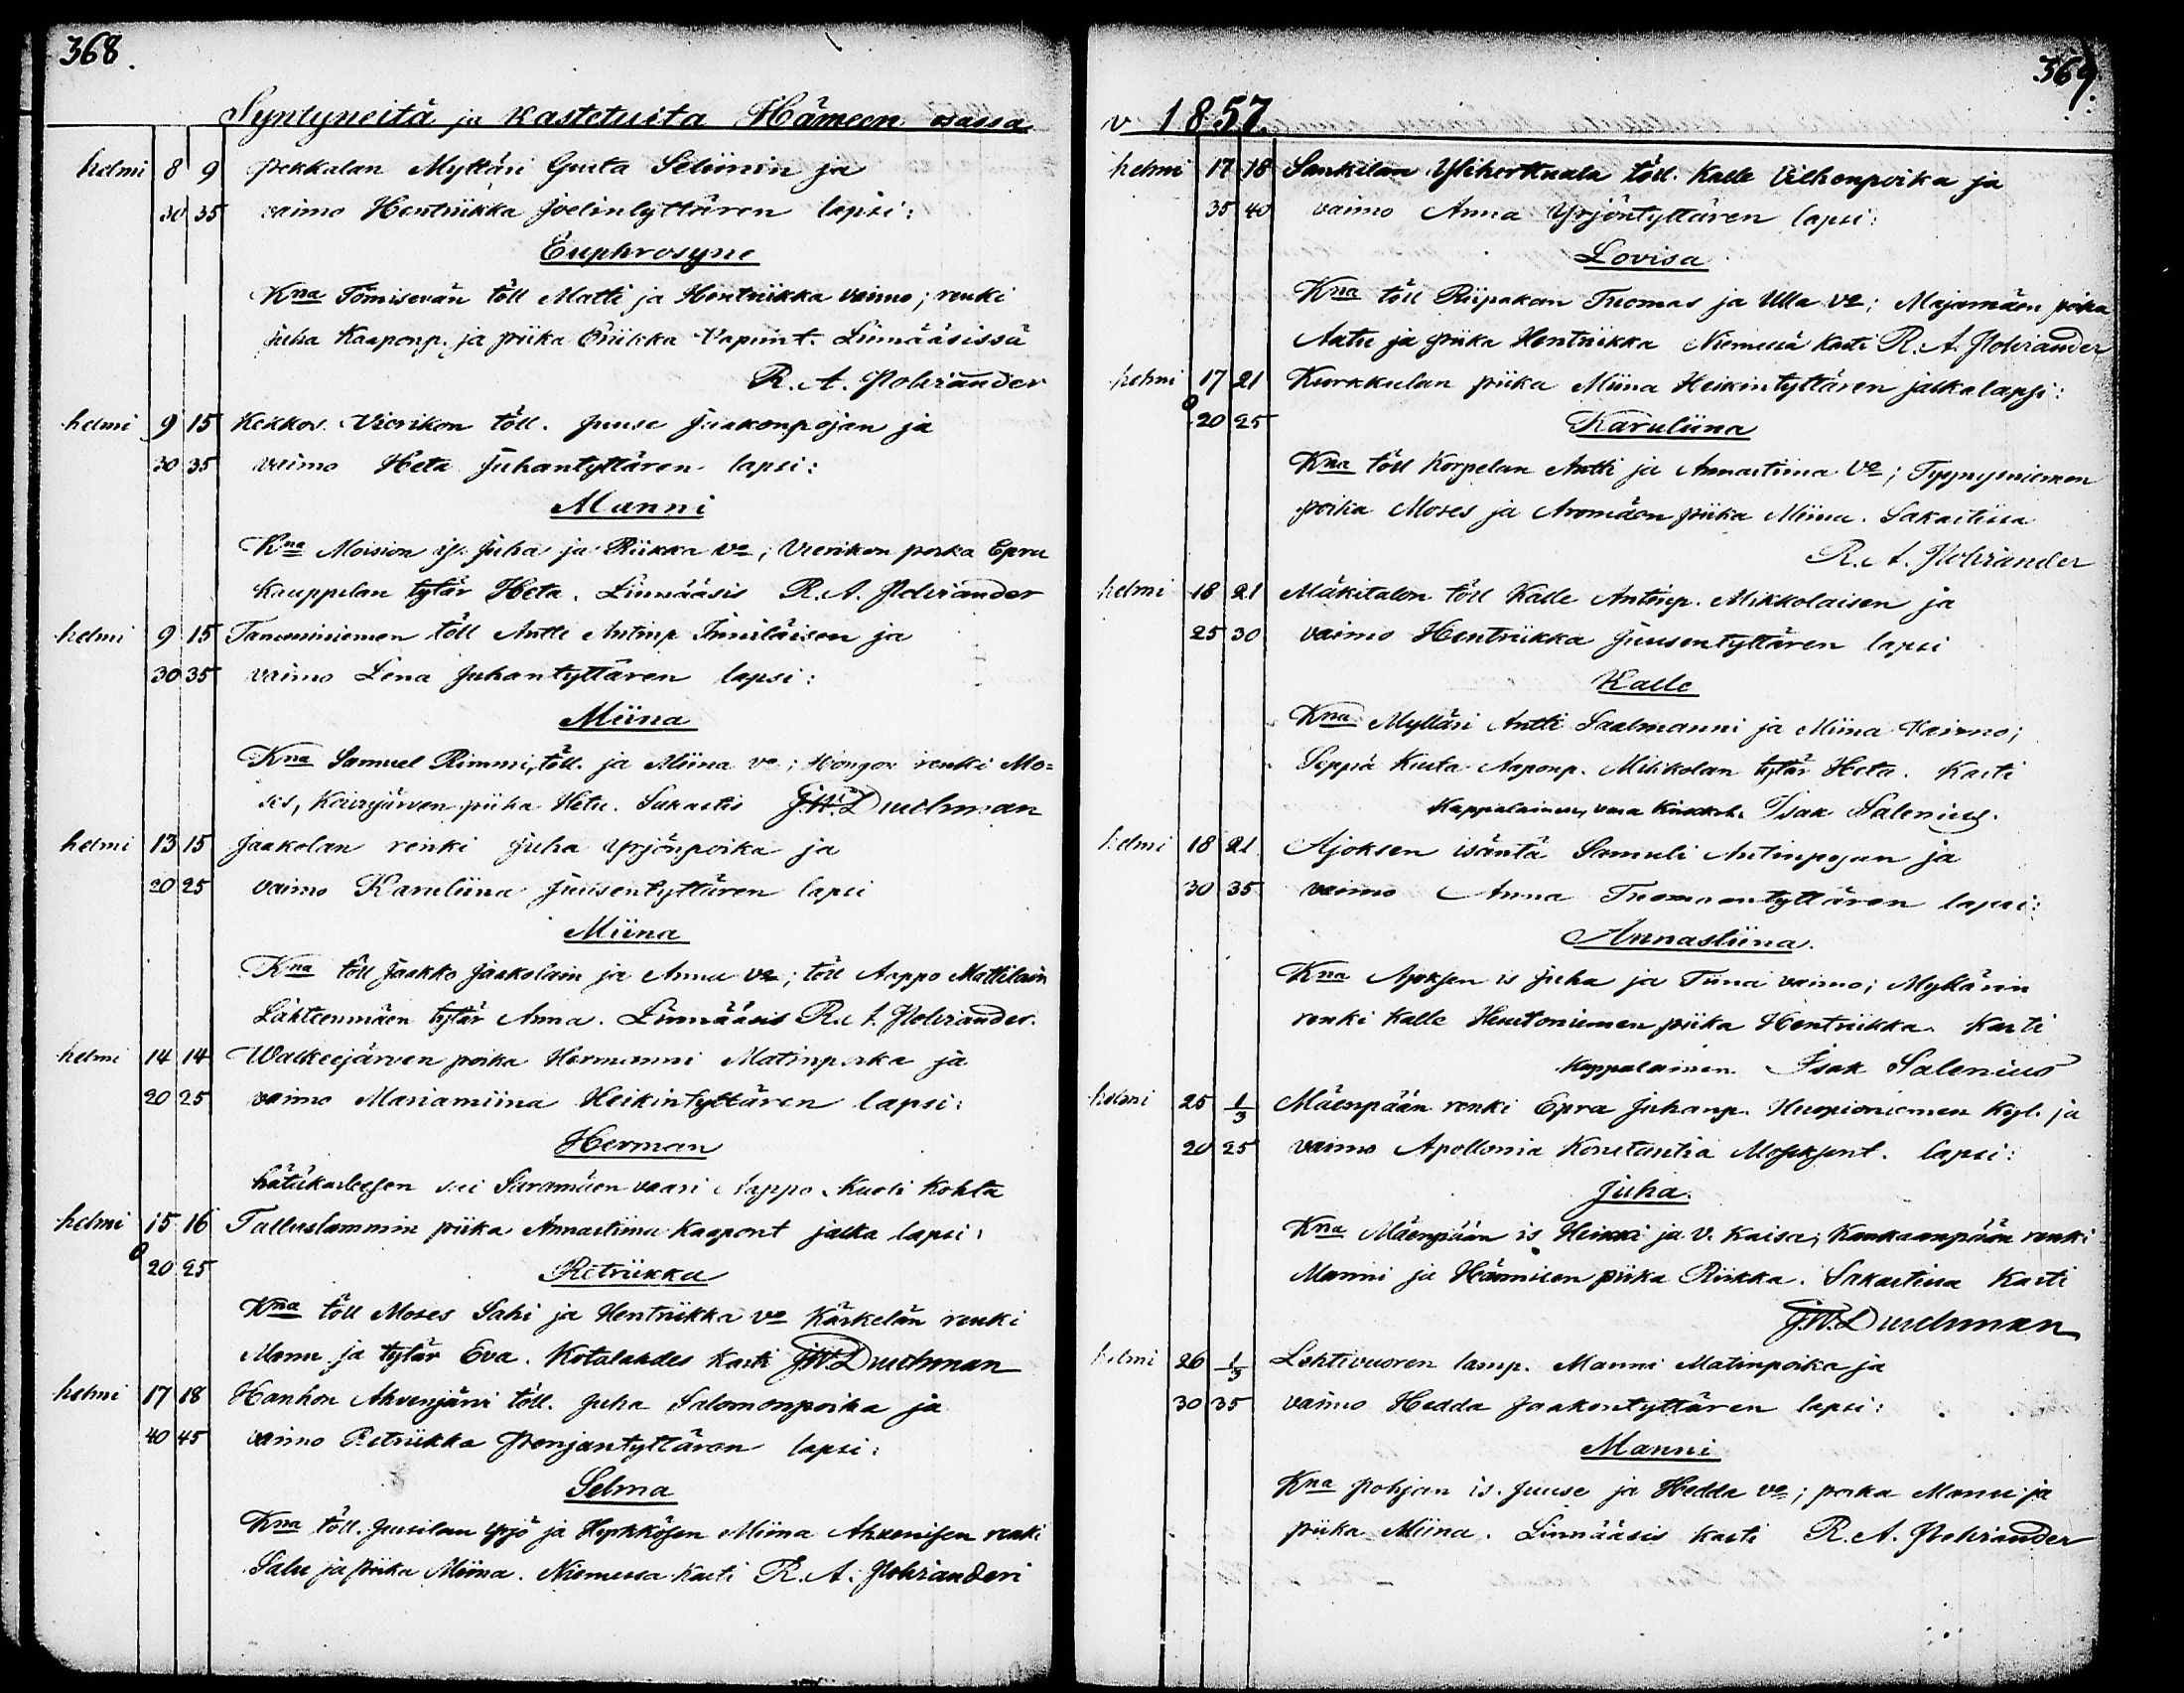 368.
Syntyneitä ja Kastetuita Hämeen osassa
helmi 8 9 Pekkalan Myttäri Gusta Seliinin ja
30 35 vaimo Hentriikka Joelintyttären lapsi:
Euphrosyne
Kna töll Matti ja Hentriikka vaimo; renki
Juha Kaaponp. ja piika Priikka Linnääsissä
R. A. Polviander
helmi 9 15 Kekkos. Vierikon töll. Juuse Jaakonpojan ja
30 35 vaimo Heta Juhantyttären lapsi:
Manni
Kna Moision is. Juha ja Riikka vo; Vierikon poika Epra
Kauppilan tytär Heta. Linnääsis R. A. Polviander
helmi 9 15 töll Antti Antinp ja
30 35 vaimo Lena Juhantyttären lapsi:
Miina
Kna Samuel Rimmi, töll. ja Miina vo; renki Mo=
ses, piika Heta. Sakastis J.W. Durchman
helmi 13 15 Jaakolan renki Juha Yrjönpoika ja
20 25 vaimo Karuliina Juusentyttären lapsi
Miina
Kna töll Jaakko Jaakolain ja Anna vo; töll Aappo Mattilain
Lähteenmäen tytär Anna. Linnääsis R. A. Polviander.
helmi 14 14 Walkeejärven poika Hermanni Matinpoika ja
20 25 vaimo Mariamiina Heikintyttären lapsi:
Herman
hätäkasteesen sai Saramäen vaari Aappo. Kuoli Kohta
helmi 15 16 Talluslammin piika Annastiina Kaapont jalka lapsi:
0 20 25 Retriikka
Kna töll Moses Sahi ja Hentriikka vo Kärkelän renki
Manu ja tytär Eva. Kotalahdes Kasti J.W. Durchman
helmi 17 18 Hanhon Ahvenjärvi töll. Juha Salomonpoika ja
40 45 vaimo Retriikka Penjantyttären lapsi:
Selma
Kna töll. Juusilan Yrjö ja Miina renki
Salu ja piika Miina. Niemessa Kasti R. A. Polvianderi
369.
v 1857.
helmi 17 18 Sankilan töll. Kalle Vilhonpoika ja
35 40 vaimo Anna Yrjöntyttären lapsi:
Lovisa
Kna töll Tuomas ja Ulla vo; Majamäen poika
Aatu ja piika Hentriikka Niemessä Kasti R. A. Polviander
helmi 17 21 Kurkkulan piika Miina Heikintyttären jalkalapsi:
0 20 25 Karuliina
Kna töll Korpelan Antti ja Annastiina vo;
poika Moses ja Aromäen piika Miina. Sakastissa
R. A. Polviander
helmi 18 21 Mäkitalon töll Kalle Antinp. Mikkolaisen ja
25 30 vaimo Hentriikka Juusentyttären lapsi
Kalle
Kna Myttäri Antti Saalmanni ja Miina Vaimo;
Seppä Kusta Aaponp. Mikkolan tytär Heta. Kasti
Kappalainen, Isak Salenius.
helmi 18 21 Ajoksen isäntä Samuli Antinpojan ja
30 35 vaimo Anna Tuomaantyttären lapsi:
Annastiina.
Kna Ajoksen is Juha ja Tiina vaimo; Myttärin
renki Kalle piika Hentriikka. Kasti
Kappalainen. Isak Salenius
helmi 25 1/3 Mäenpään renki Epra Juhanp. Kyl. ja
20 25 vaimo Apollonia Konstantia lapsi:
Juha.
Kna Mäenpään is Heikki ja V. Kaisa; Kankaanpään renki
Manni ja piika Riikka. Sakastissa Kasti
J.W. Durchman
helmi 26 1/3 Lehtivuoren lamp. Manni Matinpoika ja
30 35 vaimo Hedda Jaakontyttären lapsi:
Manni
Kna Pohjan is. Juuse ja Hedda vo; poika Manu ja
piika Miina. Linnääsis Kasti R. A. Polviander